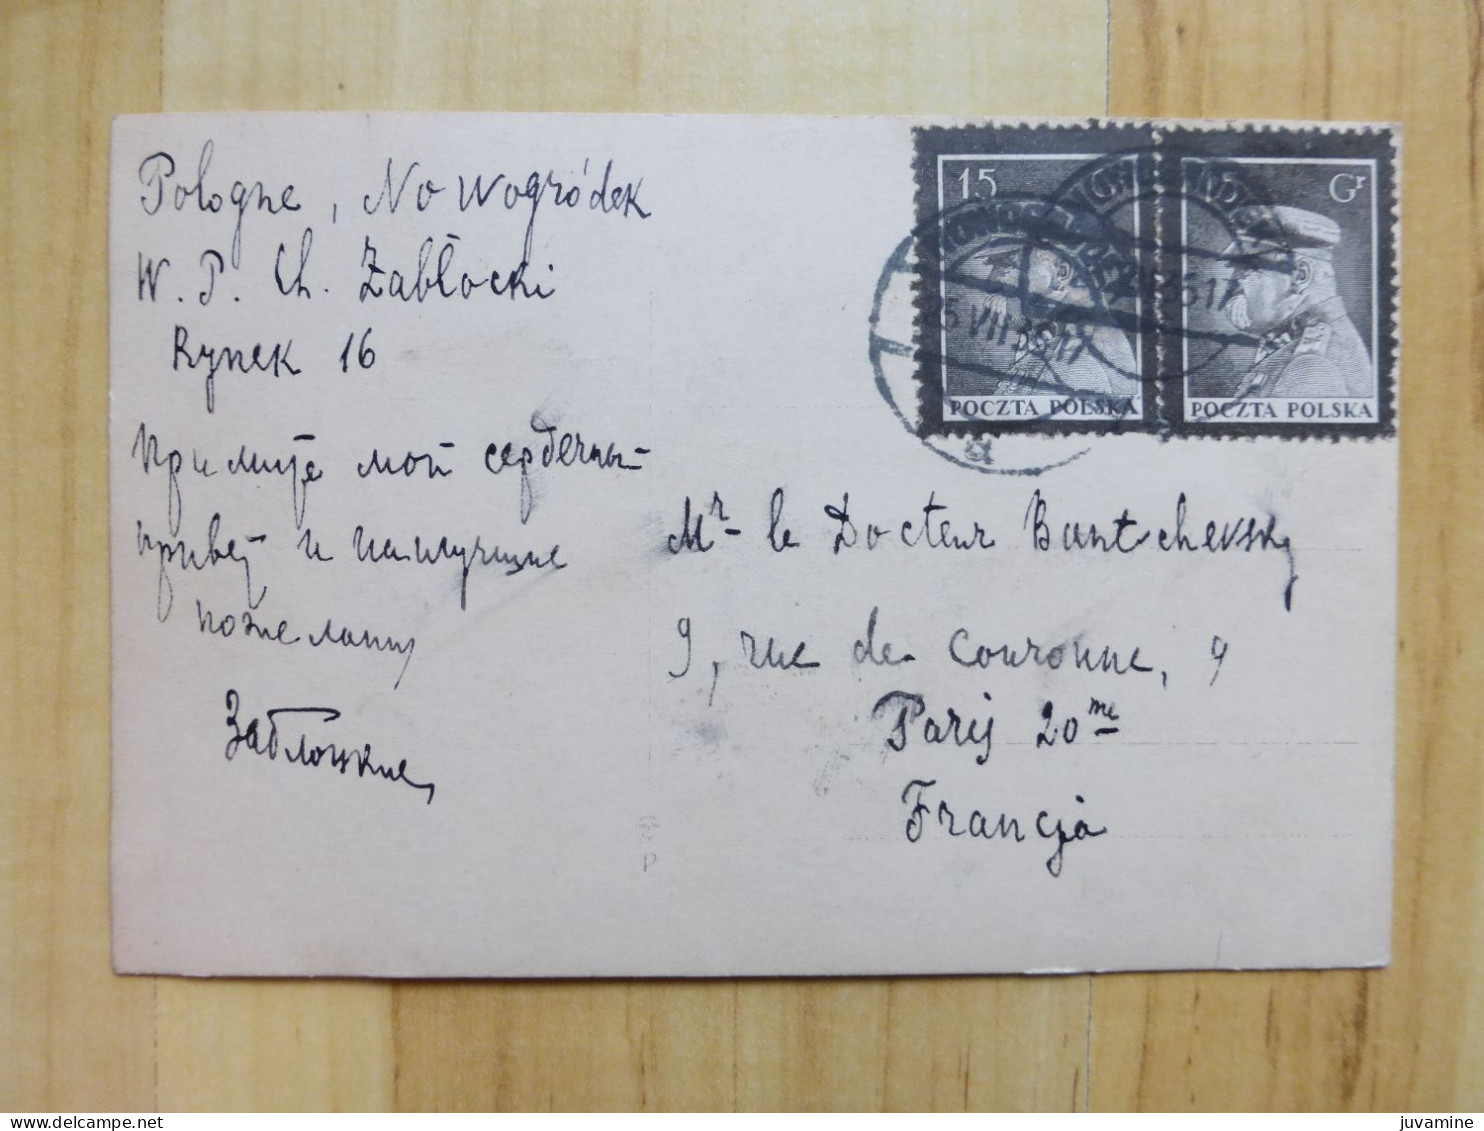 Pologne, Nowogródek
W. P. Ch. Zabłocki
Rynek 16
Примите мой сердечный
привет и наилучшие
пожелания
Заблоцкие
15
POCZTA POLSKA
Gr
POCZTA POLSKA
NOWOGRÓDEK
VII 35 17
Mr le Docteur Buntchevsky
9, rue de Couronne, 9
Paris 20me
Francja
P
juvamine